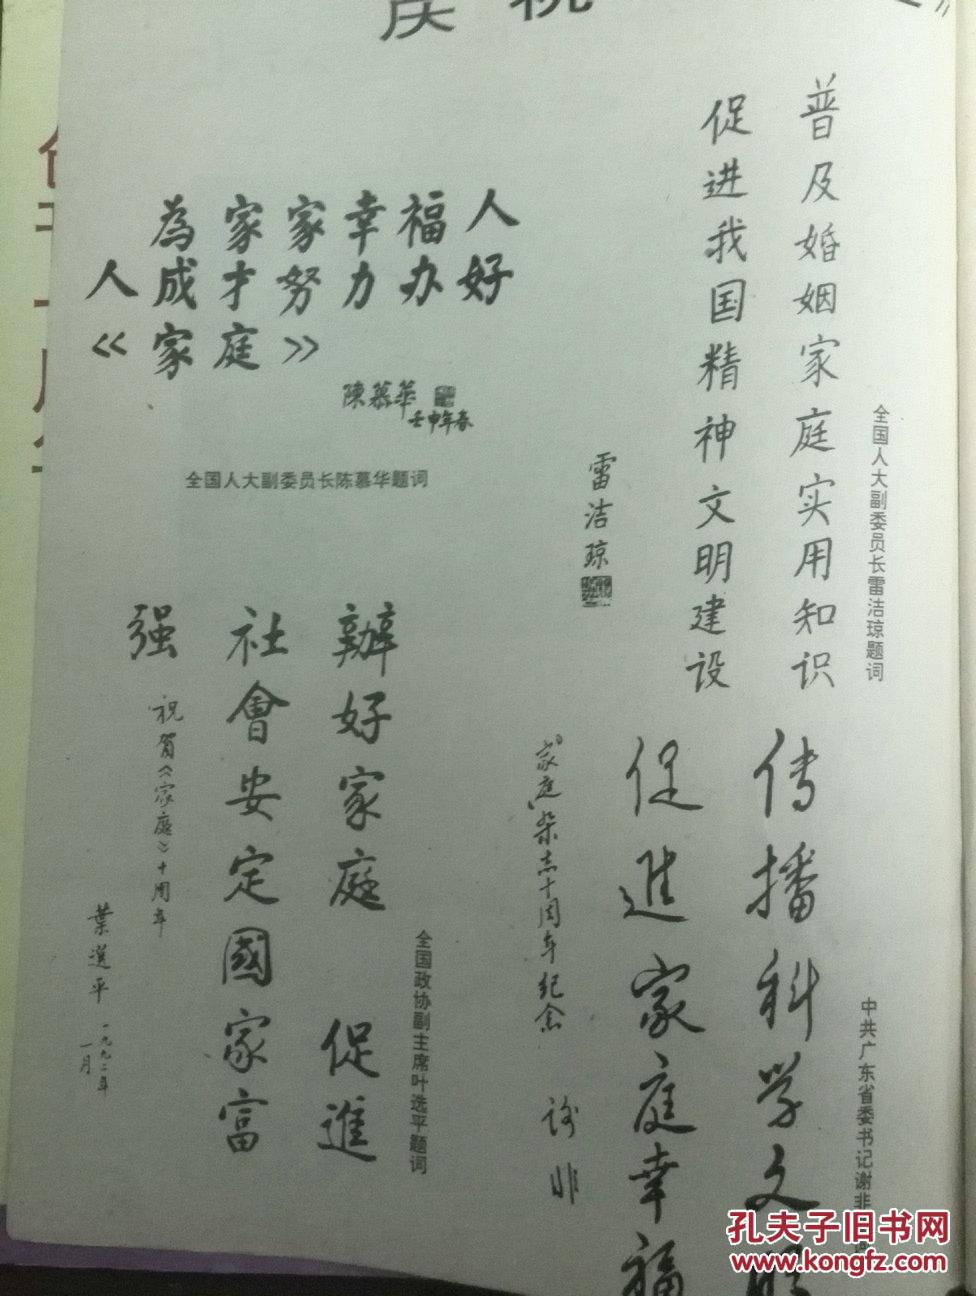 庆祝
》
普及婚姻家庭实用知识
促进我国精神文明建设
雷洁琼
全国人大副委员长雷洁琼题词
為家家幸福人
人成才努力办好
《家庭》
陳慕華
壬申年春
全国人大副委员长陈慕华题词
辦好家庭 促進
社會安定國家富
强
祝賀《家庭》十周年
葉選平 一九九二年
一月
全国政协副主席叶选平题词
传播科学文明
促進家庭幸福
《家庭》杂志十周年纪念
谢非
中共广东省委书记谢非
孔夫子旧书网
www.kongfz.com